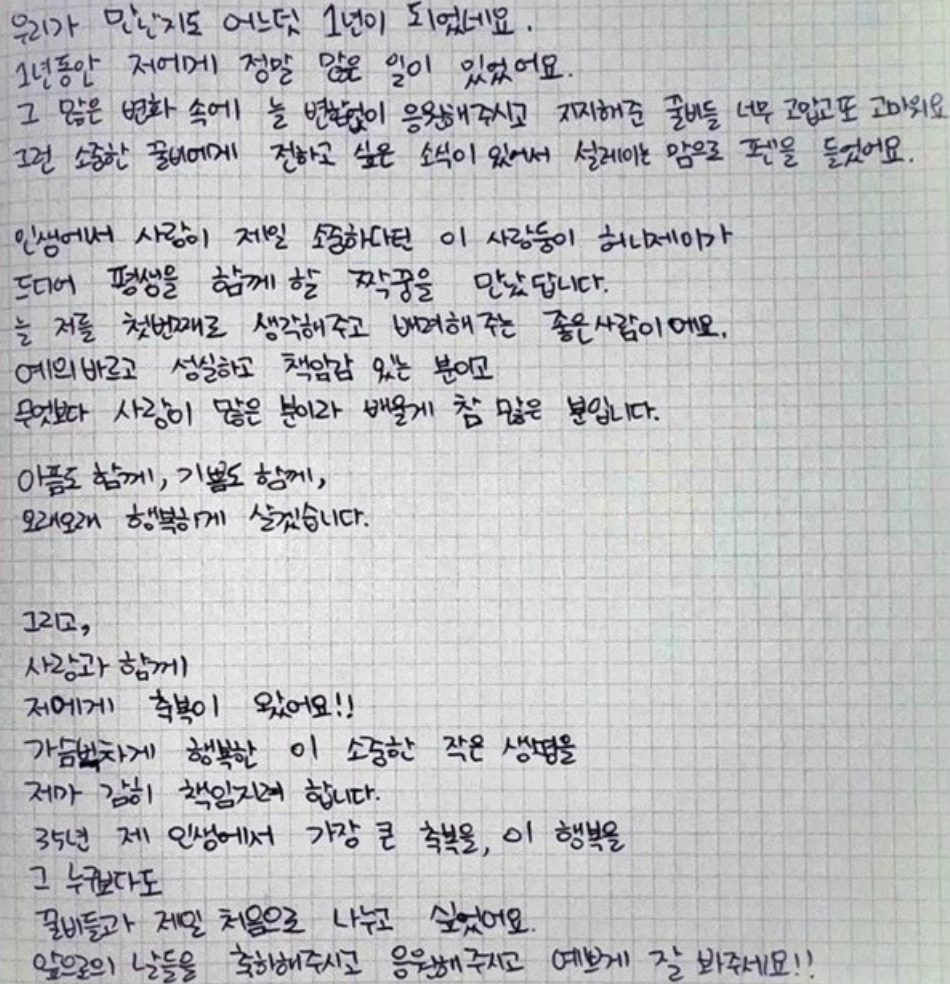 우리가 만난지도 어느덧 1년이 되었네요.
1년동안 저에게 정말 많은 일이 있었어요.
그 많은 변화 속에 늘 변함없이 응원해주시고 지지해준 꿀비들 너무 고맙고 또 고마워요
그런 소중한 꿀비에게 전하고 싶은 소식이 있어서 설레이는 맘으로 펜을 들었어요.
인생에서 사랑이 제일 소중하다던 이 사랑둥이 허니제이가
드디어 평생을 함께 할 짝꿍을 만났답니다.
늘 저를 첫번째로 생각해주고 배려해 주는 좋은 사람이에요.
예의바르고 성실하고 책임감 있는 분이고
무엇보다 사랑이 많은 분이라 배울게 참 많은 분입니다.
아픔도 함께, 기쁨도 함께,
오래오래 행복하게 살겠습니다.
그리고,
사랑과 함께
저에게 축복이 왔어요!!
가슴벅차게 행복한 이 소중한 작은 생명을
제가 감히 책임지려 합니다.
35년 제 인생에서 가장 큰 축복을, 이 행복을
그 누구보다도
꿀비들과 제일 처음으로 나누고 싶었어요.
앞으로의 날들을 축하해주시고 응원해주시고 예쁘게 잘 봐주세요!!